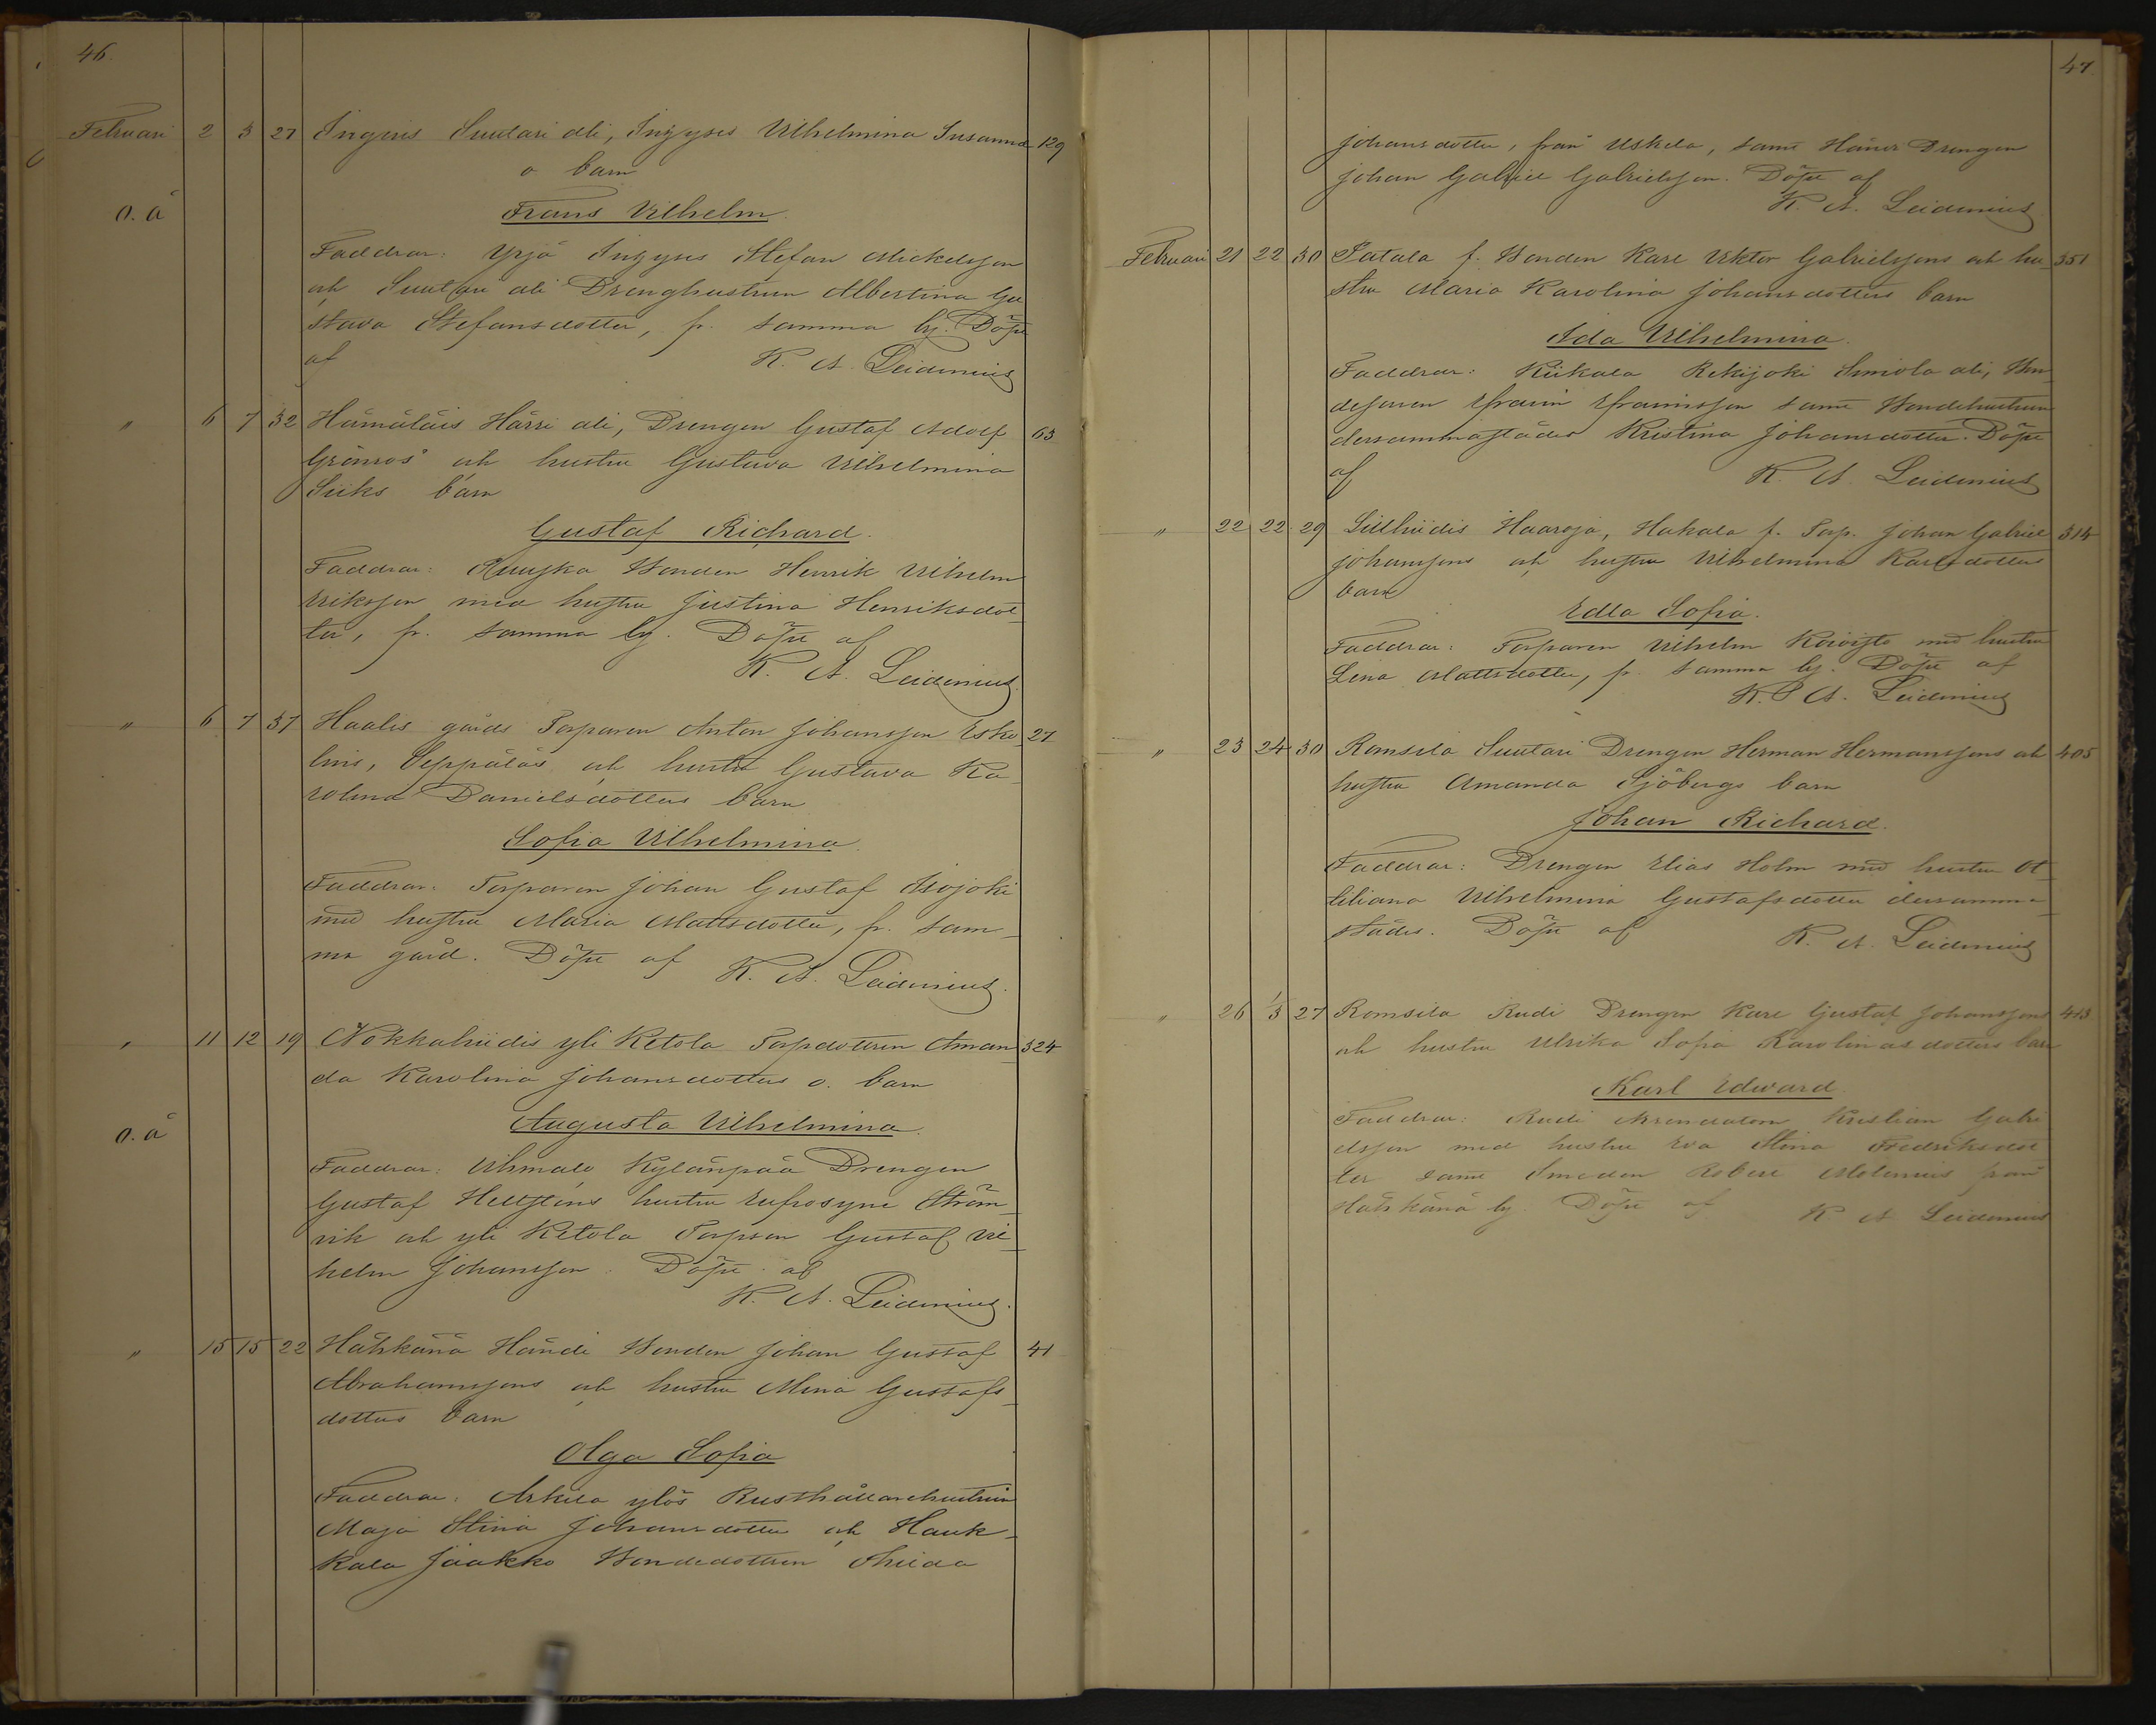 46.
Februari 2 3 27 Ingeris Suutari ali, Ingyses Vilhelmina Susanna 129
o barn
o. ä
Frans Vilhelm.
Faddrar: Yrjä Ingyses Stefan Mickelsson
och Suutari ali Drenghustrun Albertina Gu
stava Stefansdotter, fr. samma by. Döpt
af K. A. Leidenius
" 6 7 32 Hämäläis Härri ali, Drengen Gustaf Adolf 63
Grönros och hustru Gustava Vilhelmina
Siiks barn
Gustaf Richard.
Faddrar: Bonden Henrik Vilhelm
Eriksson med hustru Justina Henriksdot
ter, fr. samma by. Döpt af
K. A. Leidenius.
" 6 7 37 Haalis gårds Torparen Anton Johansson Esko 27
lins, Seppäläs och hustru Gustava Ka
rolina Danielsdotters barn
Sofia Vilhelmina.
Faddrar: Torparen Johan Gustaf Isojoki
med hustru Maria Mattsdotter, fr. sam-
ma gård. Döpt af K. A. Leidenius.
" 11 12 19 Nokkahiidis yli Ketola Torpdottren Aman 324
da Karolina Johansdotters o. barn
o. ä
Augusta Vilhelmina.
Faddrar: Uhmalo Kylänpää Drengen
Gustaf Hellsténs hustru Eufrosyne Ström-
vik och yli Ketola Torpson Gustaf Vil
helm Johansson. Döpt af
K. A. Leidenius.
" 15 15 22 Hähkänä Händi Bonden Johan Gustaf 41
Abrahamssons och hustru Mina Gustafs
dotters barn
Olga Sofia
Faddrar: Arkila ylös Rusthållarehustrun
Maja Stina Johansdotter och Hauk-
kala Jaakko Bondedottren

47.
Johansdotter, från Uskela, samt Häneis Drengen
Johan Gabriel Gabrielsson. Döpt af
K. A. Leidenius
Februari 21 22 30 Patala f. Bonden Karl Viktor Gabrielssons och hu 351
stru Maria Karolina Johansdotters barn
Ida Vilhelmina.
Faddrar: Kiikala Rekijoki Simola ali, Bon
desonen Efraim Efraimsson samt Bondehustrun
dersammastädes Kristina Johansdotter. Döpt
af K. A. Leidenius
" 22 22 29 Haaroja, Hakala f. Torp. Johan Gabriel 314
Johanssons och hustru Vilhelmina Karlsdotters
barn
Edla Sofia.
Faddrar: Torparen Vilhelm Koivisto med hustru
Lena Mattsdotter, fr. samma by. Döpt af
K. A. Leidenius
" 23 24 30 Romsila Suutari Drengen Herman Hermanssons och 405
hustru Amanda Sjöbergs barn
Johan Richard.
Faddrar: Drengen Elias Holm med hustru Ot
tiliana Vilhelmina Gustafsdotter dersamma-
städes. Döpt af K. A. Leidenius
" 26 1/3 27 Romsila Rudi Drengen Karl Gustaf Johanssons 413
och hustru Ulrika Sofia Karolinasdotters barn
Karl Edward.
Faddrar: Rudi Arrendatorn Kristian Gabri
elsson med hustru Eva Stina Fredriksdot
ter samt Smeden Robert från
Hähkänä by. Döpt af K. A. Leidenius